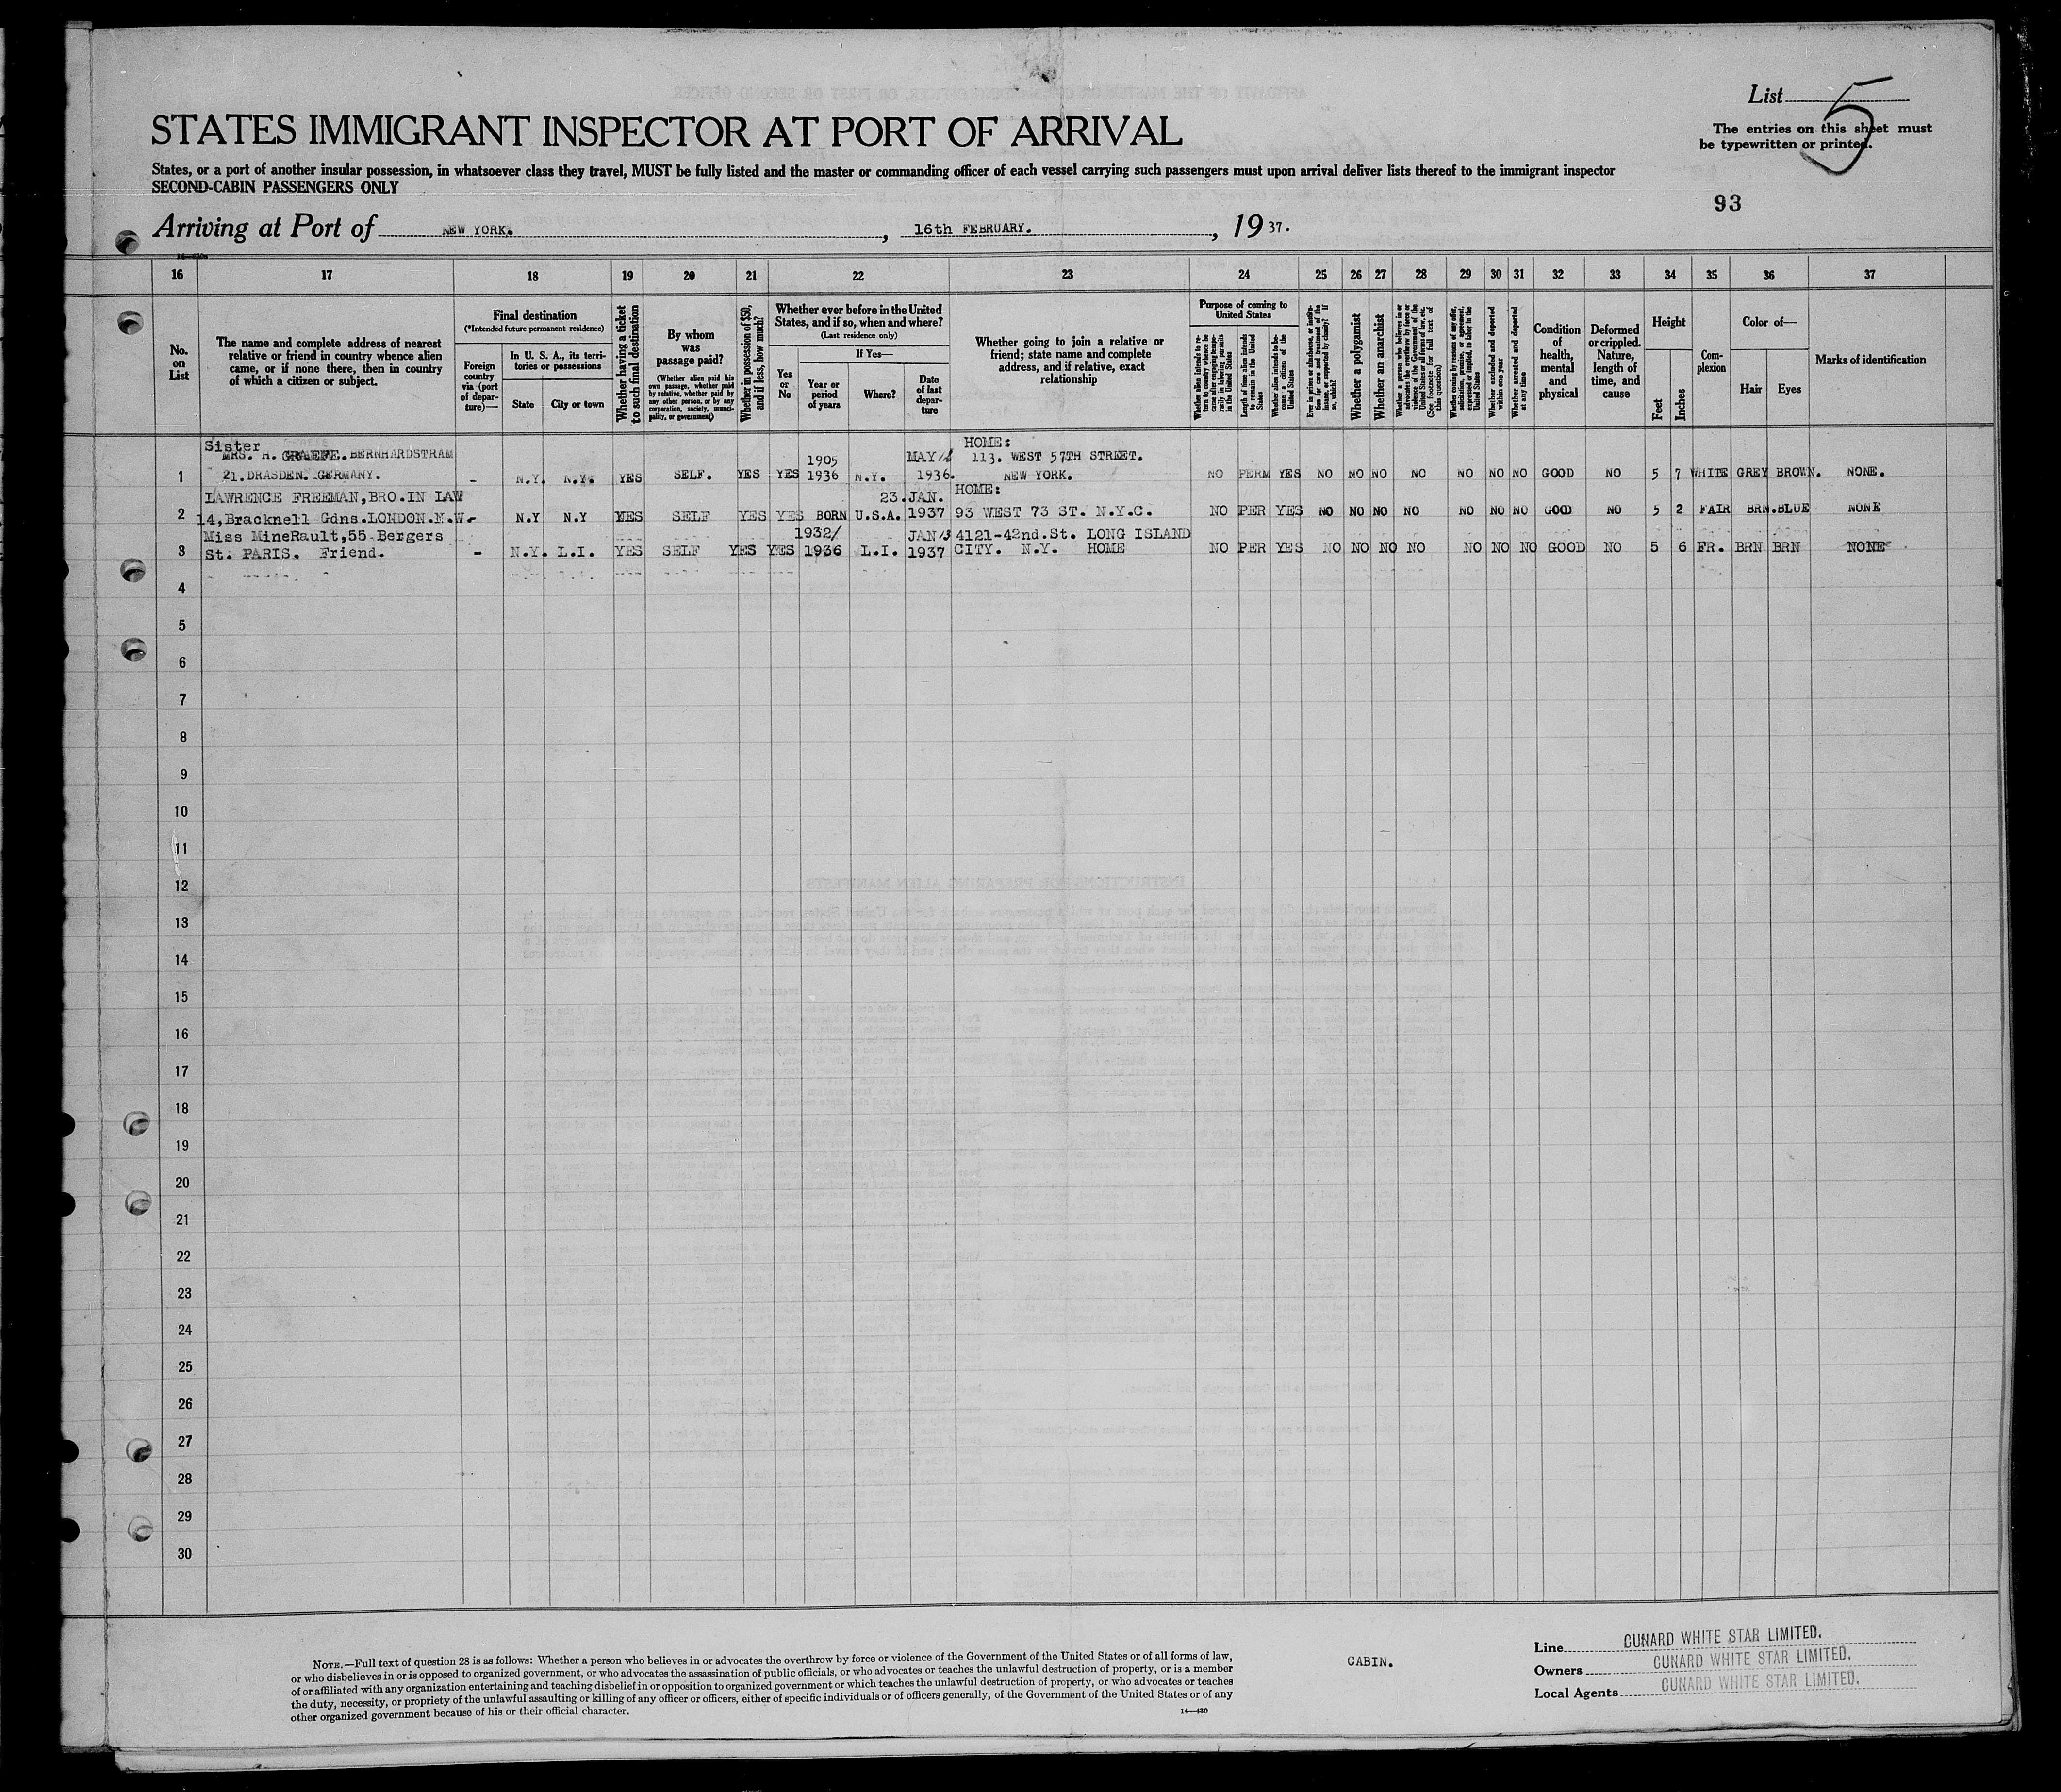 List 5
The entries on this sheet must
be typewritten or printed.
STATES IMMIGRANT INSPECTOR AT PORT OF ARRIVAL
States, or a port of another insular possession, in whatsoever class they travel, MUST be fully listed and the master or commanding officer of each vessel carrying such passengers must upon arrival deliver lists thereof to the immigrant inspector
SECOND-CABIN PASSENGERS ONLY
93
Arriving at Port of NEW YORK. , 16th FEBRUARY. , 19 37.
16 17 18 19 20 21 22 23 24 25 26 27 28 29 30 31 32 33 34 35 36 37
No.
on
List
The name and complete address of nearest
relative or friend in country whence alien
came, or if none there, then in country
of which a citizen or subject.
Final destination
(*Intended future permanent residence)
Foreign
country
via (port
of depar-
ture)—
In U. S. A., its terri-
tories or possessions
State
City or town
Whether having a ticket
to such final destination
By whom
was
passage paid?
(Whether alien paid his
own passage, whether paid
by relative, whether paid by
any other person, or by any
corporation, society, munici-
pality, or government)
Whether in possession of $50,
and if less, how much?
Whether ever before in the United
States, and if so, when and where?
(Last residence only)
Yes
or
No
If Yes—
Year or
period
of years
Where?
Date
of last
depar-
ture
Whether going to join a relative or
friend; state name and complete
address, and if relative, exact
relationship
Purpose of coming to
United States
Whether alien intends to re-
turn to country whence he
came after engaging tempo-
rarily in laboring pursuits
in the United States
Length of time alien intends
to remain in the United
States
Whether alien intends to be-
come a citizen of the
United States
Ever in prison or almshouse, or institu-
tion for care and treatment of the
insane, or supported by charity? If
so, which?
Whether a polygamist
Whether an anarchist
Whether a person who believes in or
advocates the overthrow by force or
violence of the Government of the
United States or all forms of law, etc.
(See footnote for full text of
this question)
Whether coming by reasons of any offer,
solicitation, promise, or agreement,
expressed or implied, to labor in the
United States
Whether excluded and deported
within one year
Whether arrested and deported
at any time
Condition
of
health,
mental
and
physical
Deformed
or crippled.
Nature,
length of
time, and
cause
Height
Feet
Inches
Com-
plexion
Color of—
Hair
Eyes
Marks of identification
Sister HOME:
MRS. H. GRAEFE. BERNHARDSTRAM 1905 MAY/ 113. WEST 57TH STREET.
1 21. DRASDEN. GERMANY. - N.Y. N.Y. YES SELF. YES YES 1936 N.Y. 1936. NEW YORK. NO PERM YES NO NO NO NO NO NO NO GOOD NO 5 7 WHITE GREY BROWN. NONE.
LAWRENCE FREEMAN,BRO.IN LAW 23.JAN. HOME:
2 14,Bracknell Gdns.LONDON.N.W.- N.Y N.Y YES SELF YES YES BORN U.S.A. 1937 93 WEST 73 ST. N.Y.C. NO PER YES NO NO NO NO NO NO NO GOOD NO 5 2 FAIR BRN.BLUE NONE
Miss MineRault,55 Bergers 1932/ JAN/3 4121-42nd.St. LONG ISLAND
3 St. PARIS. Friend. - N.Y. L.I. YES SELF YES YES 1936 L.I. 1937 CITY. N.Y. HOME NO PER YES NO NO NO NO NO NO NO GOOD NO 5 6 FR. BRN BRN NONE
4
5
6
7
8
9
10
11
12
13
14
15
16
17
18
19
20
21
22
23
24
25
26
27
28
29
30
NOTE.—Full text of question 28 is as follows: Whether a person who believes in or advocates the overthrow by force or violence of the Government of the United States or of all forms of law,
or who disbelieves in or is opposed to organized government, or who advocates the assassination of public officials, or who advocates or teaches the unlawful destruction of property, or is a member
of or affiliated with any organization entertaining and teaching disbelief in or opposition to organized government or which teaches the unlawful destruction of property, or who advocates or teaches
the duty, necessity, or propriety of the unlawful assaulting or killing of any officer or officers, either of specific individuals or of officers generally, of the Government of the United States or of any
other organized government because of his or their official character.
14—430
CABIN.
Line CUNARD WHITE STAR LIMITED.
Owners CUNARD WHITE STAR LIMITED.
Local Agents CUNARD WHITE STAR LIMITED.